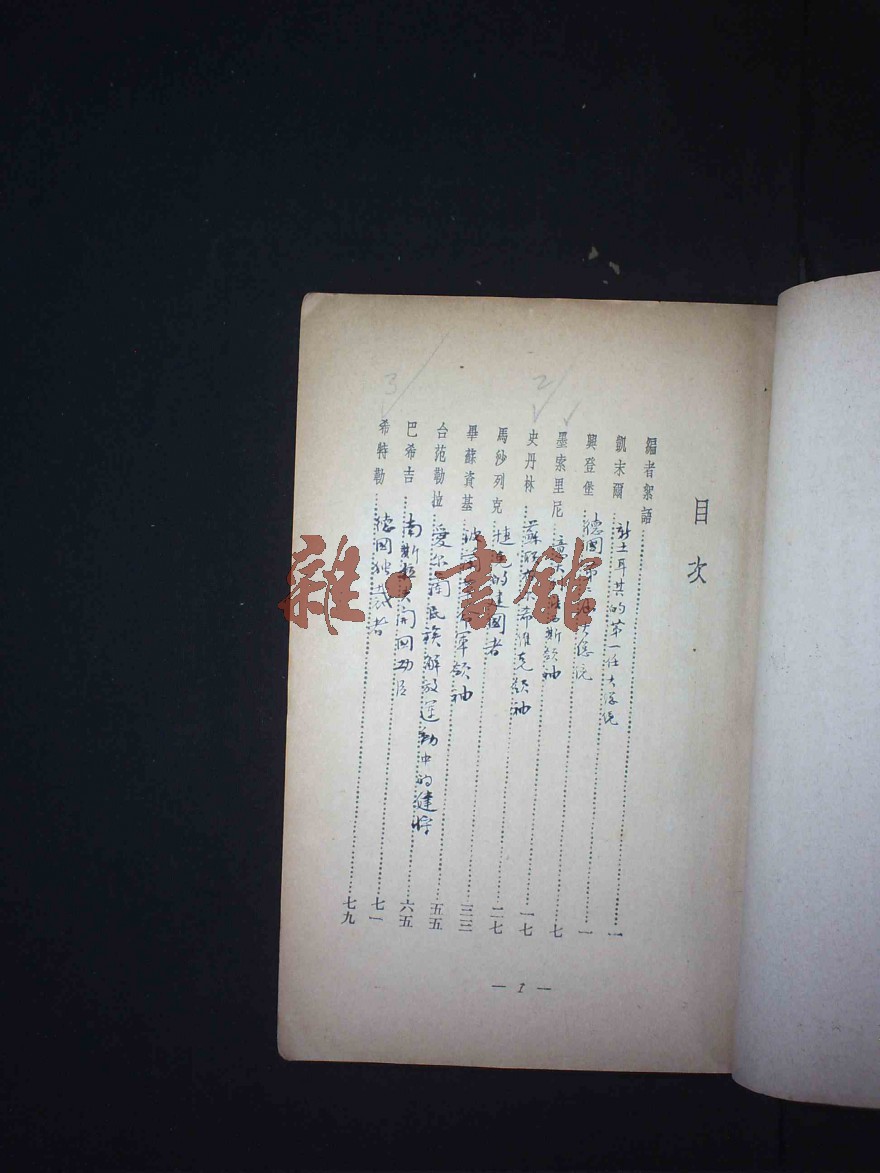 目次
編者絮語……一
凱末爾 新土耳其的第一任大總統……一
興登堡 德國……總統……七
墨索里尼 …斯領袖……一七
史丹林 蘇聯布…希維克領袖……二七
馬紗列克 捷克的建國者……三三
畢蘇資基 波…軍領袖……五五
台范勒拉 愛尔蘭民族解放運動中的健將……六五
巴希吉 南斯拉夫開國功臣……七一
希特勒 德國独裁者……七九
2
3
— 1 —
雜·書館